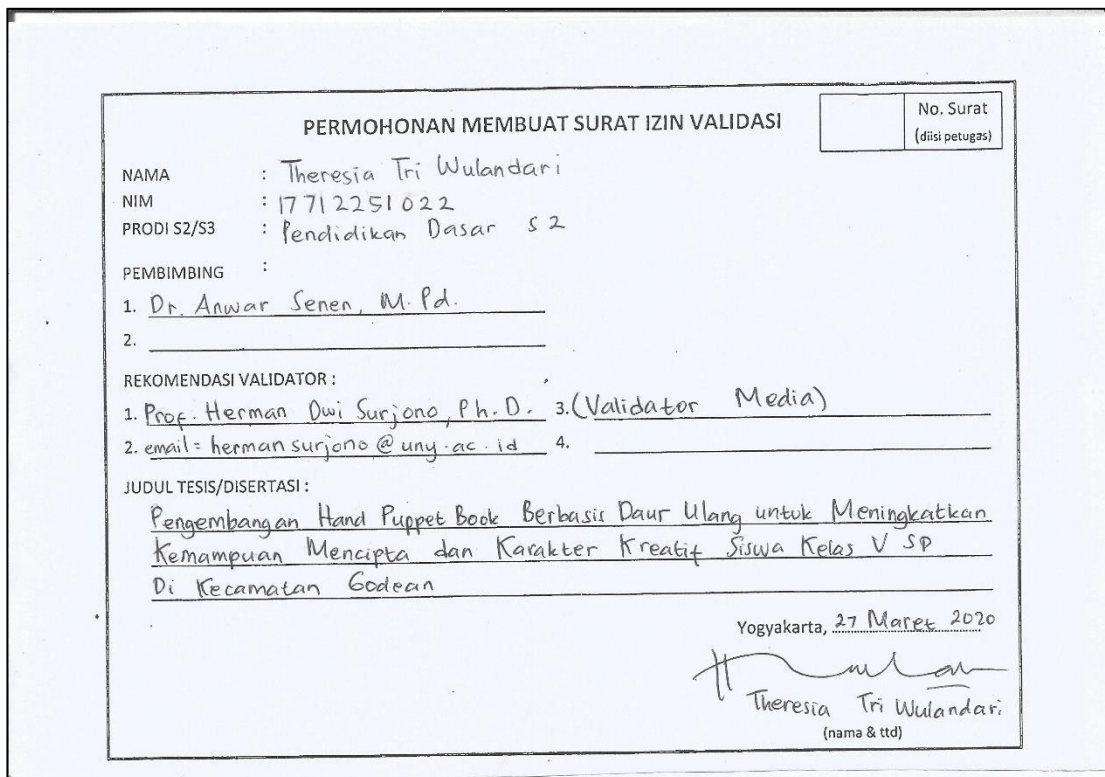 PERMOHONAN MEMBUAT SURAT IZIN VALIDASI
No. Surat
(diisi petugas)
NAMA : Theresia Tri Wulandari
NIM : 17712251022
PRODI S2/S3 : Pendidikan Dasar S2
PEMBIMBING :
1. Dr. Anwar Senen, M.Pd.
2.
REKOMENDASI VALIDATOR :
1. Prof. Herman Dwi Surjono, Ph.D. 3. (Validator Media)
2. email = hermansurjono@uny.ac.id 4.
JUDUL TESIS/DISERTASI :
Pengembangan Hand Puppet Book Berbasis Daur Ulang untuk Meningkatkan
Kemampuan Mencipta dan Karakter Kreatif Siswa Kelas V SD
Di Kecamatan Godean
Yogyakarta, 27 Maret 2020
Theresia Tri Wulandari
(nama & ttd)